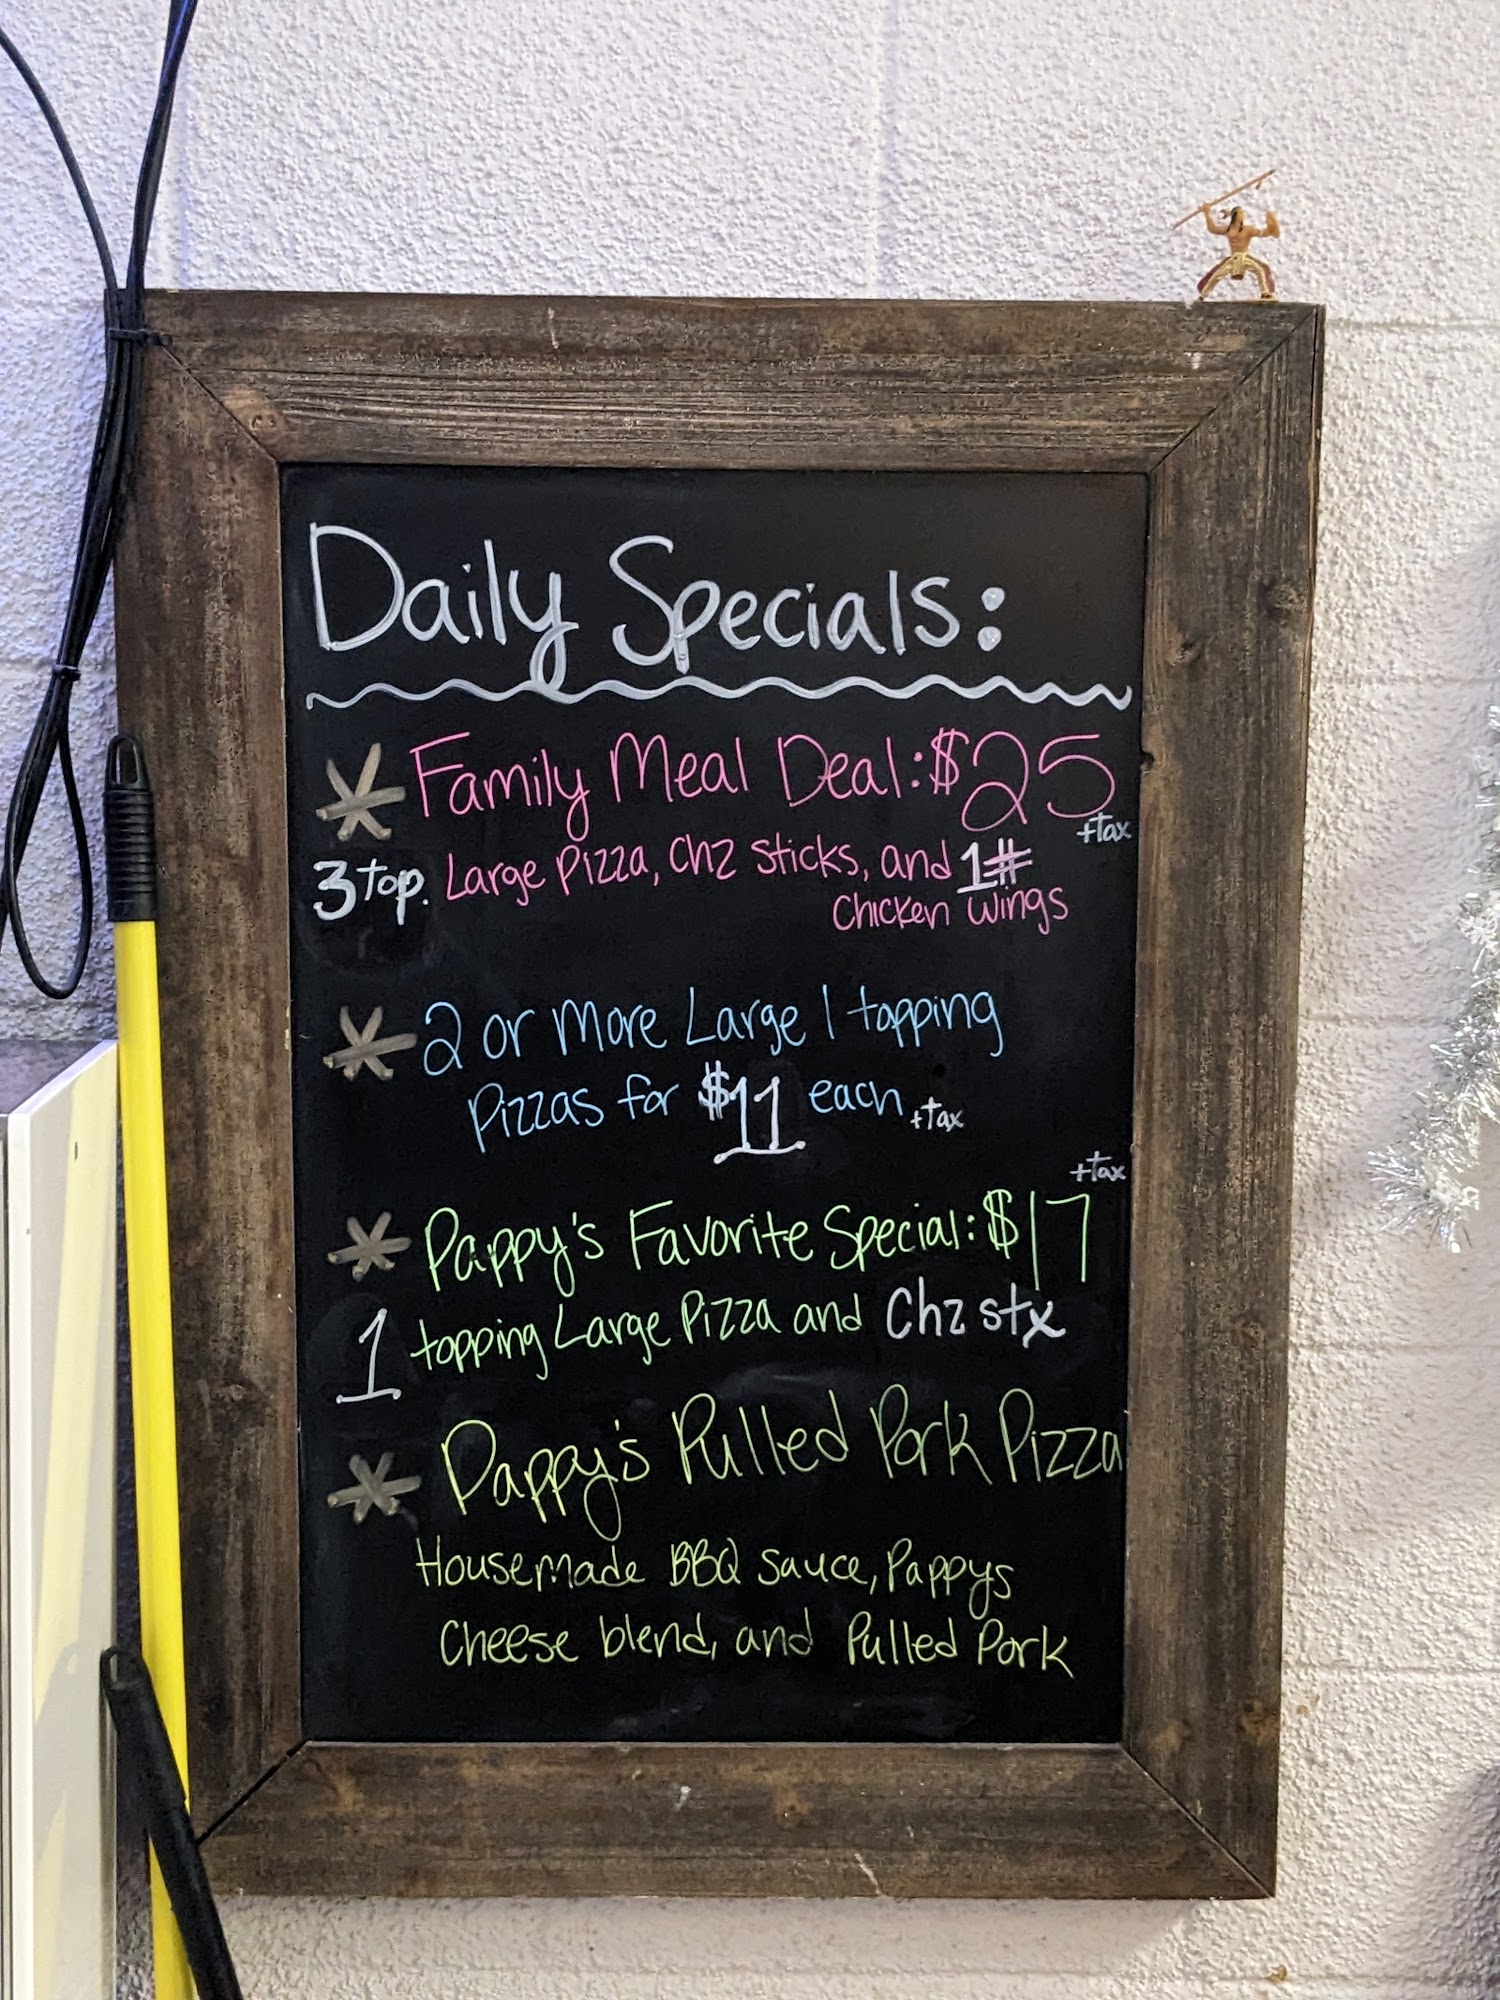 Daily Specials:
* Family Meal Deal: $25
+tax
3 top. Large Pizza, Chz sticks, and 1#
Chicken Wings
* 2 or More Large 1 topping
Pizzas for $11 each +tax
+tax
* Pappy's Favorite Special: $17
1 topping Large Pizza and Chz stx
* Pappy's Pulled Pork Pizza
Housemade BBQ Sauce, Pappys
Cheese blend, and Pulled Pork